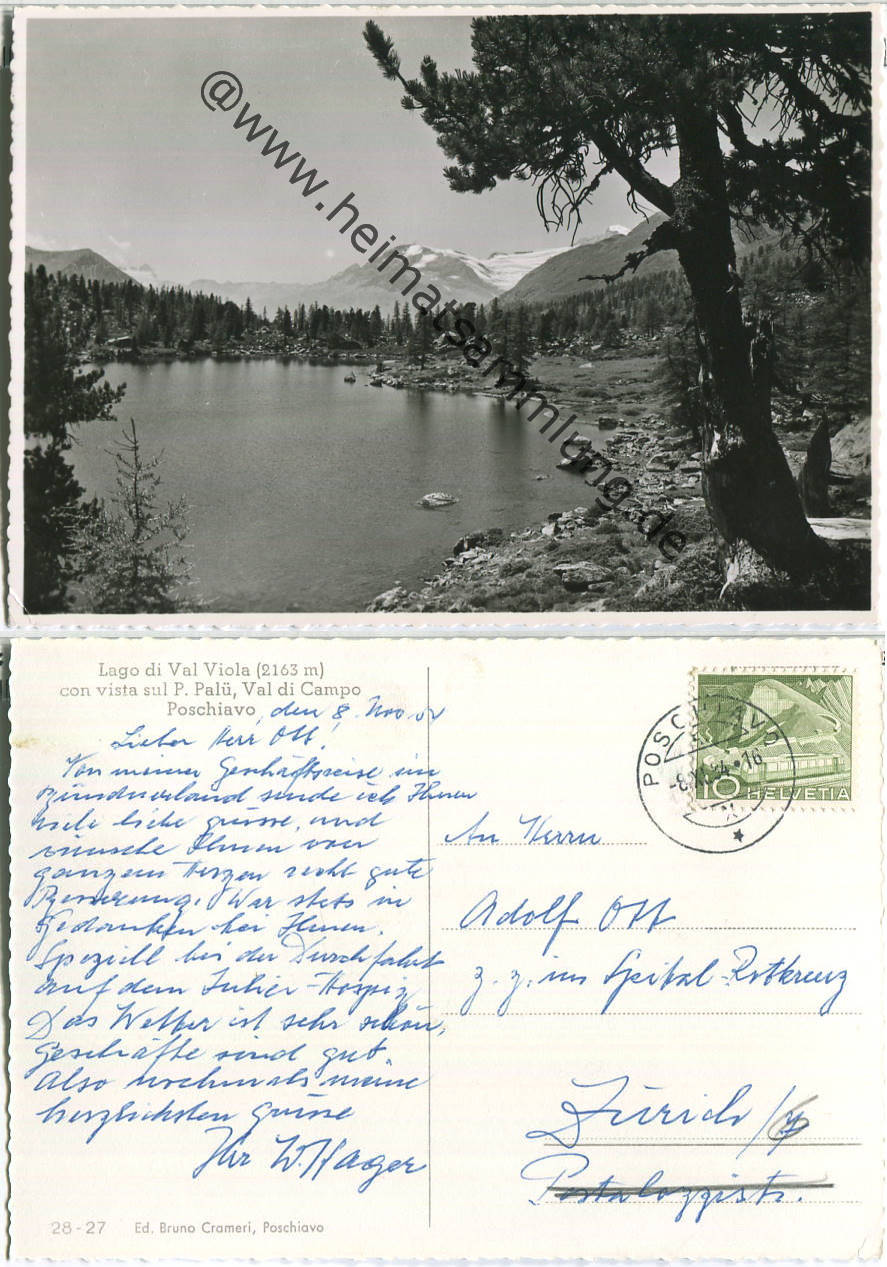 @www.heimatsammlung.de
Lago di Val Viola (2163 m)
con vista sul P. Palü, Val di Campo
Poschiavo, den 8. Nov. 54
Lieber Herr Ott!
Von meiner Geschäftsreise im
Bündnerland sende ich Ihnen
viele liebe grüsse, und
wünsche Ihnen von
ganzem Herzen recht gute
Besserung. War stets in
Gedanken bei Ihnen.
Speziell bei der Durchfahrt
auf dem Julier-Hospiz
Das Wetter ist sehr schön,
geschäfte sind gut.
Also nochmals meine
herzlichsten grüsse
Ihr W. Hager
28-27 Ed. Bruno Crameri, Poschiavo
POSCHIAVO
-8.XI.54.-16
10 HELVETIA
An Herrn
Adolf Ott
z. Z. im Spital-Rotkreuz
Zürich /
Pestalozzistr.